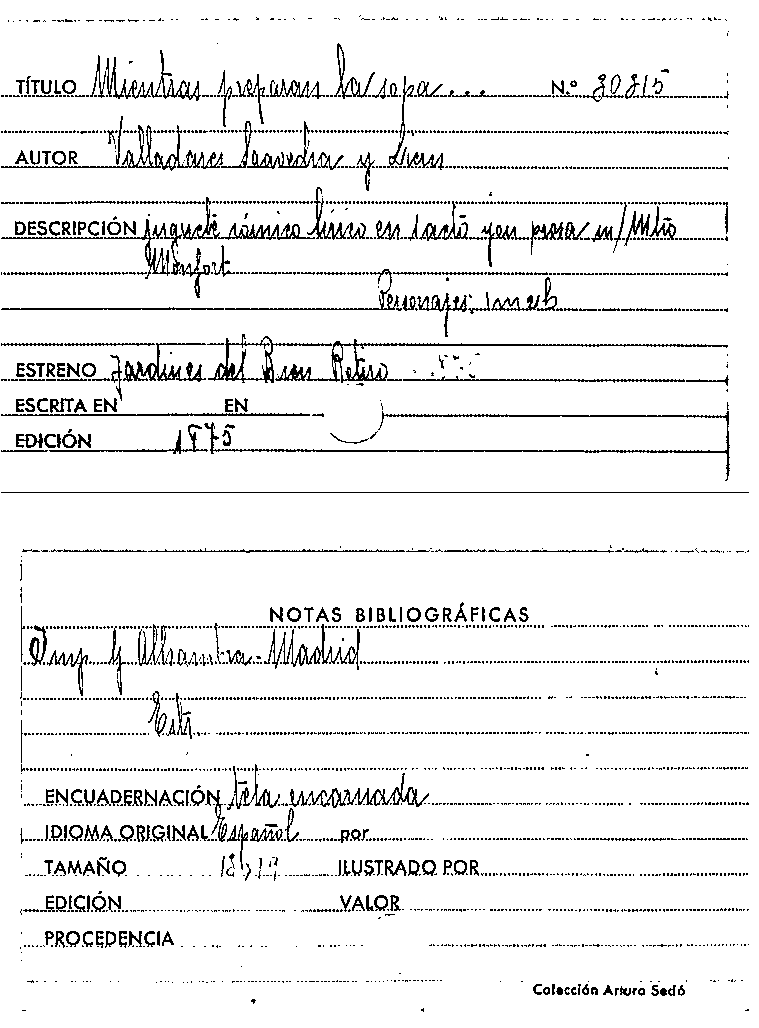 TÍTULO Mientras preparan la sopa... N.º 30315
AUTOR Valladares Saavedra y
DESCRIPCIÓN juguete cómico lírico en 1 acto y en prosa m/ Mtro
Monfort
Personajes:
ESTRENO Jardines del Buen Retiro
ESCRITA EN EN
EDICIÓN 1875
NOTAS BIBLIOGRÁFICAS
Imp Alhambra-Madrid
ENCUADERNACIÓN tela encarnada
IDIOMA ORIGINAL Español por
TAMAÑO ILUSTRADO POR
EDICIÓN VALOR
PROCEDENCIA
Colección Arturo Sedó